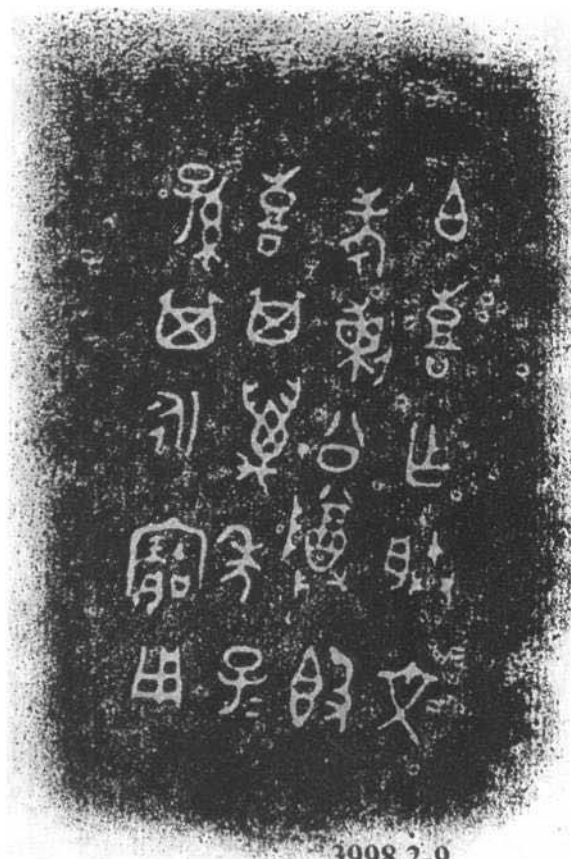 白喜乍朕文
考剌公尊𣪘
喜其萬年子=
孫=其永寶用
3998.2-9